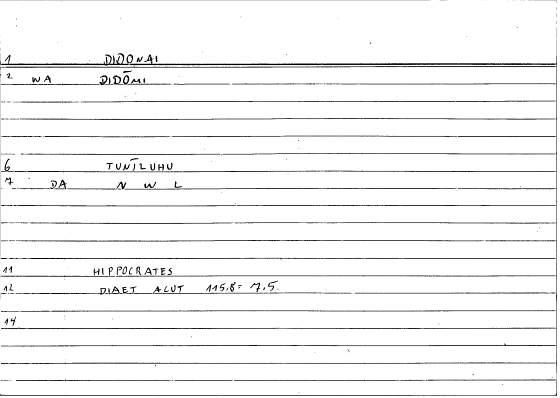 1 DIDONAI
2 WA DIDŌMI
6 TUNĪLUHU
7 DA N W L
11 HIPPOCRATES
12 DIAET ACUT 115.8= 7.5
14